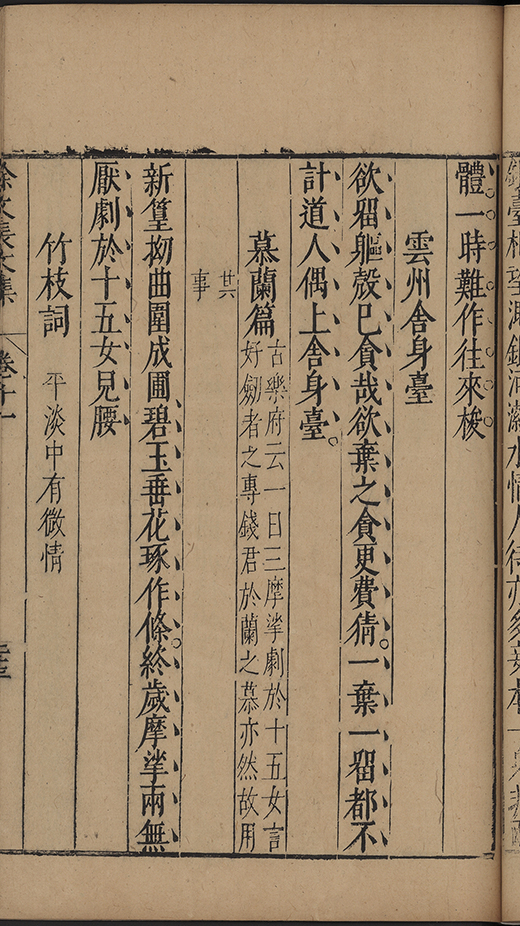 體一時難作往來梭
雲州舍身臺
欲畱軀殼已貪哉欲棄之貪更費猜一棄一畱都不
計道人偶上舍身臺
慕蘭篇
古樂府云一日三摩挲劇於十五女言
好劒者之專錢君於蘭之慕亦然故用
其
事
新篁拗曲圍成圃碧玉垂花琢作條終歲摩挲兩無
厭劇於十五女兒腰
竹枝詞
平淡中有微情
徐文長文集
卷十一